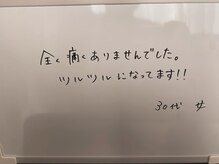 全く痛くありませんでした。
ツルツルになってます!!
30代 女